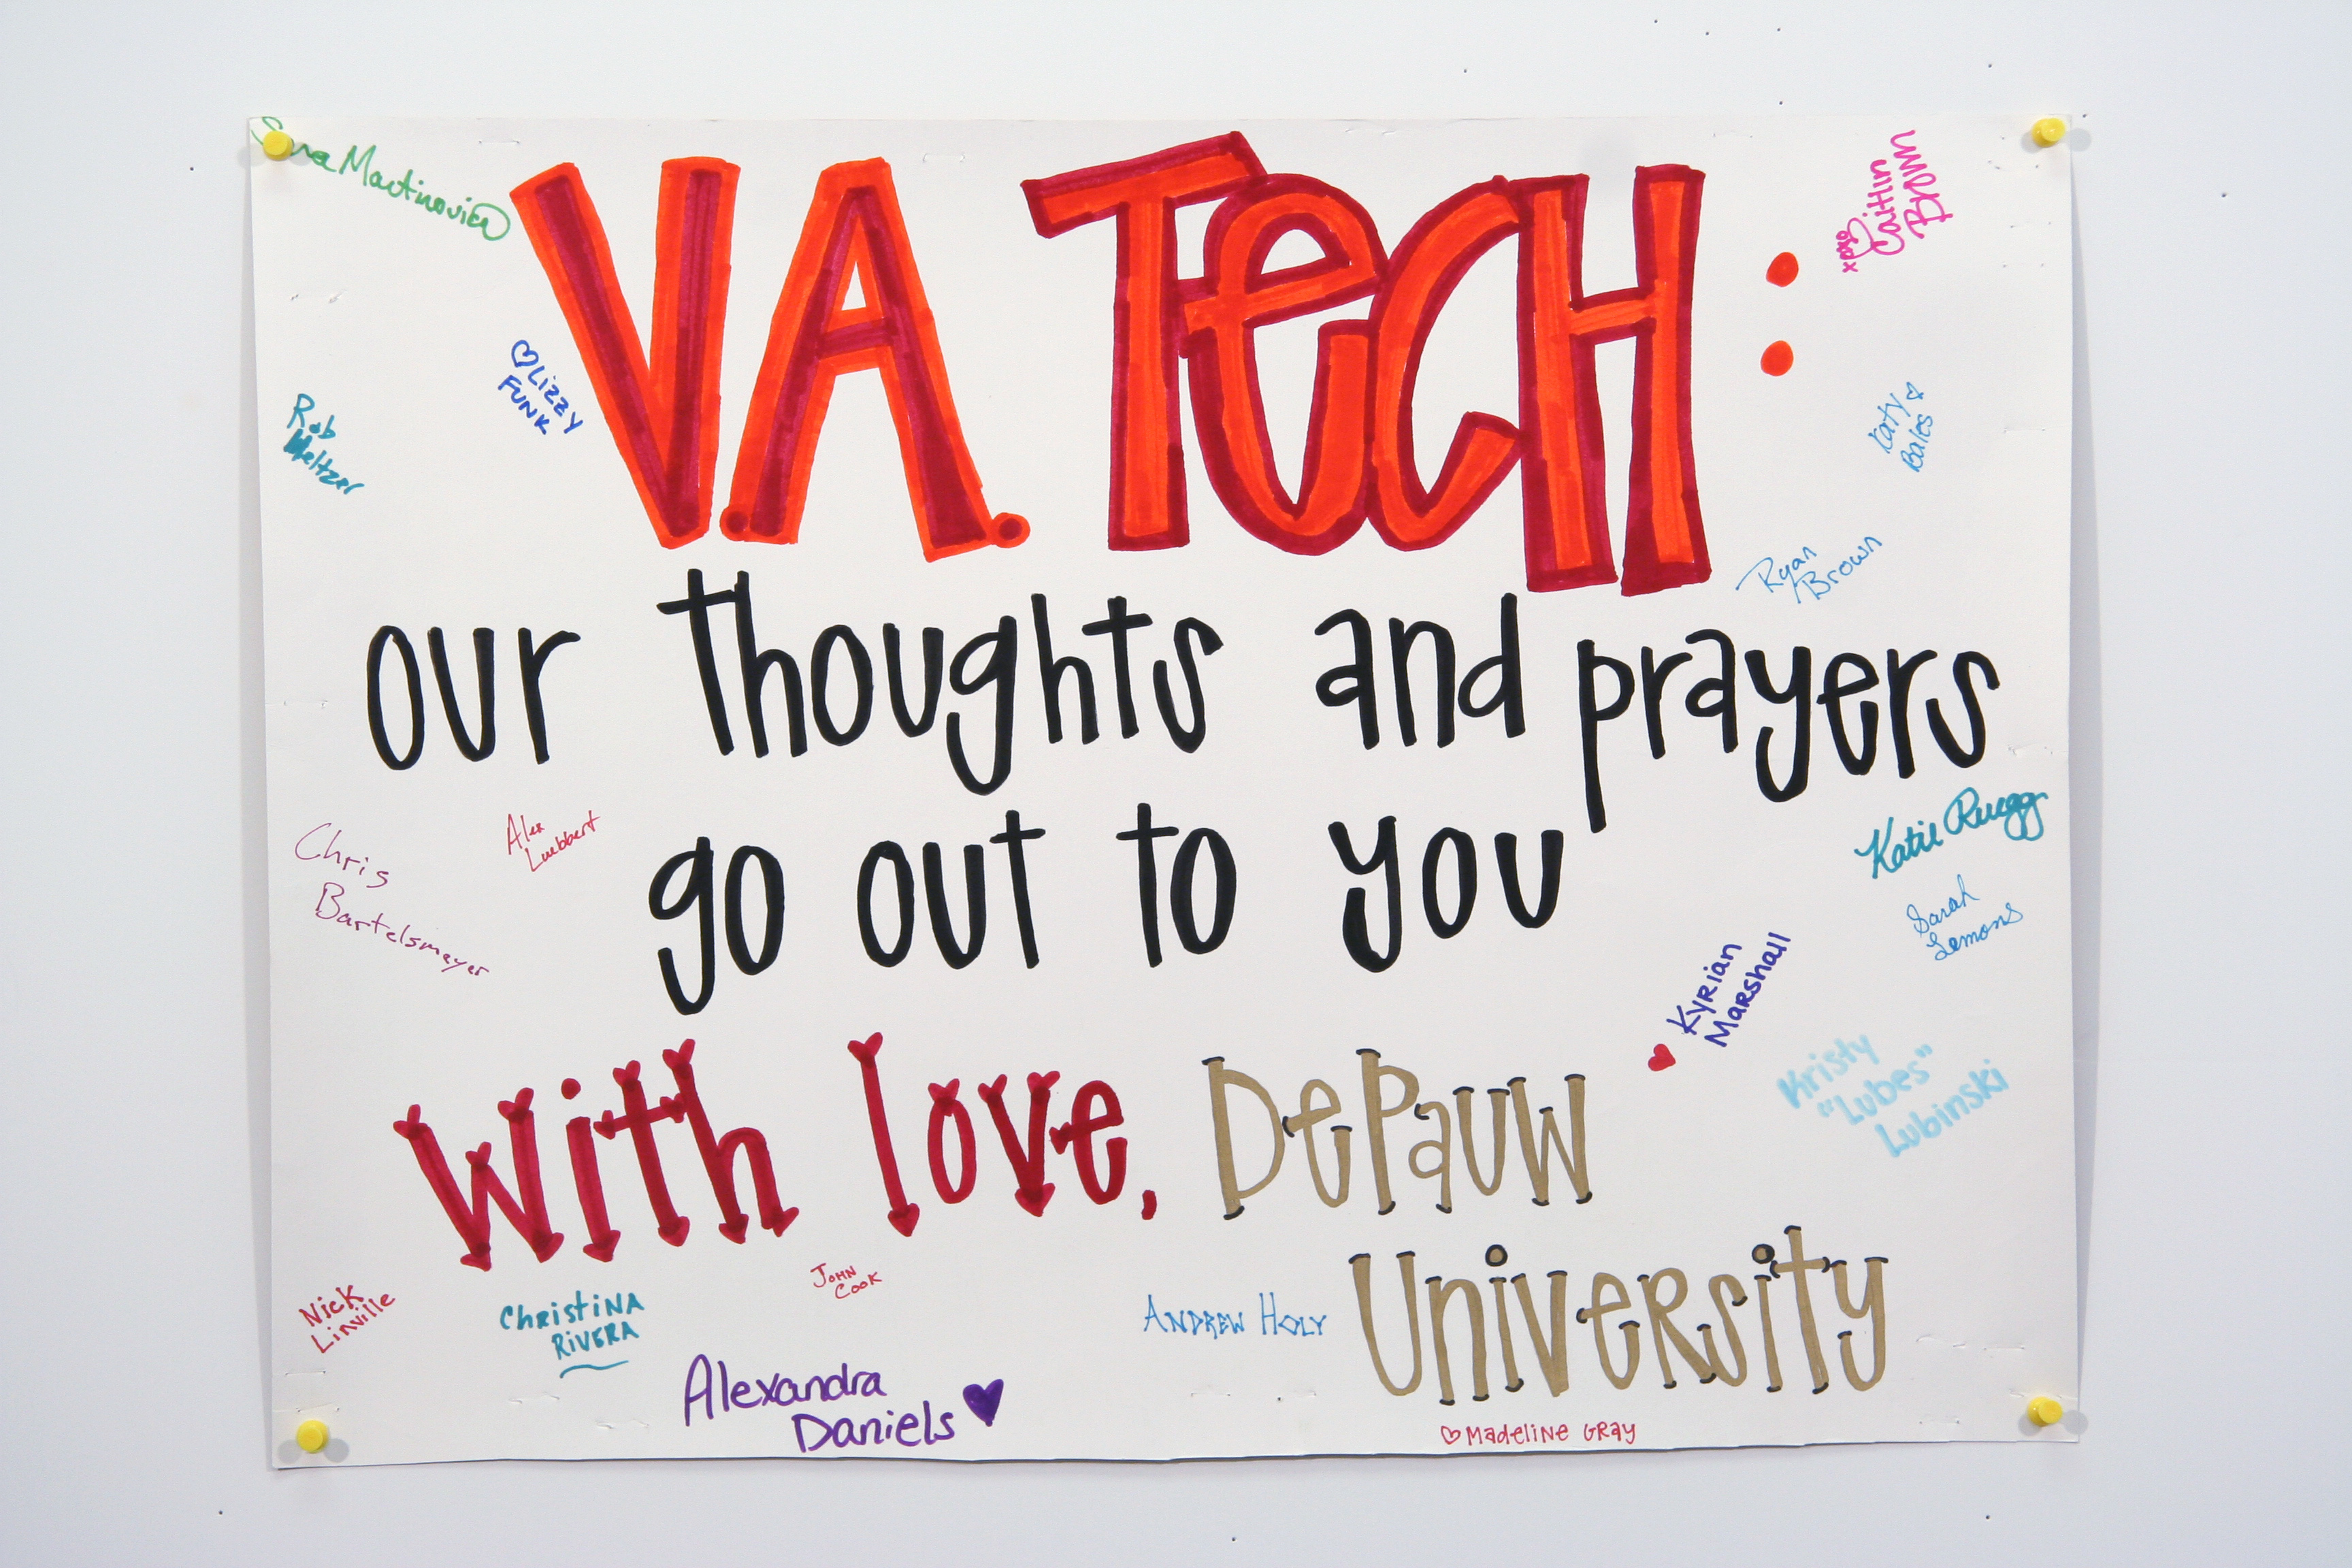 Sara Martinovich
V.A. TecH:
xoxo Caitlin
Brown
Lizzy
Funk
Rob
Meltzer
Katy
Bales
Ryan
Brown
our thoughts and prayers
go out to you
Chris
Bartelsmayer
Alex
Luebbert
Katie Rugg
Sarah
Lemons
Kyrian
Marshall
Kristy
"Lubes"
Lubinski
With love, DePauw
University
Nick
Linville
Christina
Rivera
John
Cook
Andrew Holy
Alexandra
Daniels
Madeline Gray